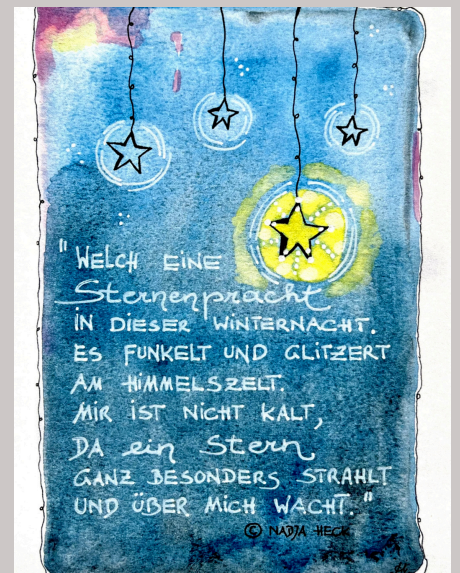 "WELCH EINE
Sternenpracht
IN DIESER WINTERNACHT.
ES FUNKELT UND GLITZERT
AM HIMMELSZELT.
MIR IST NICHT KALT,
DA ein Stern
GANZ BESONDERS STRAHLT
UND ÜBER MICH WACHT."
© NADJA HECK